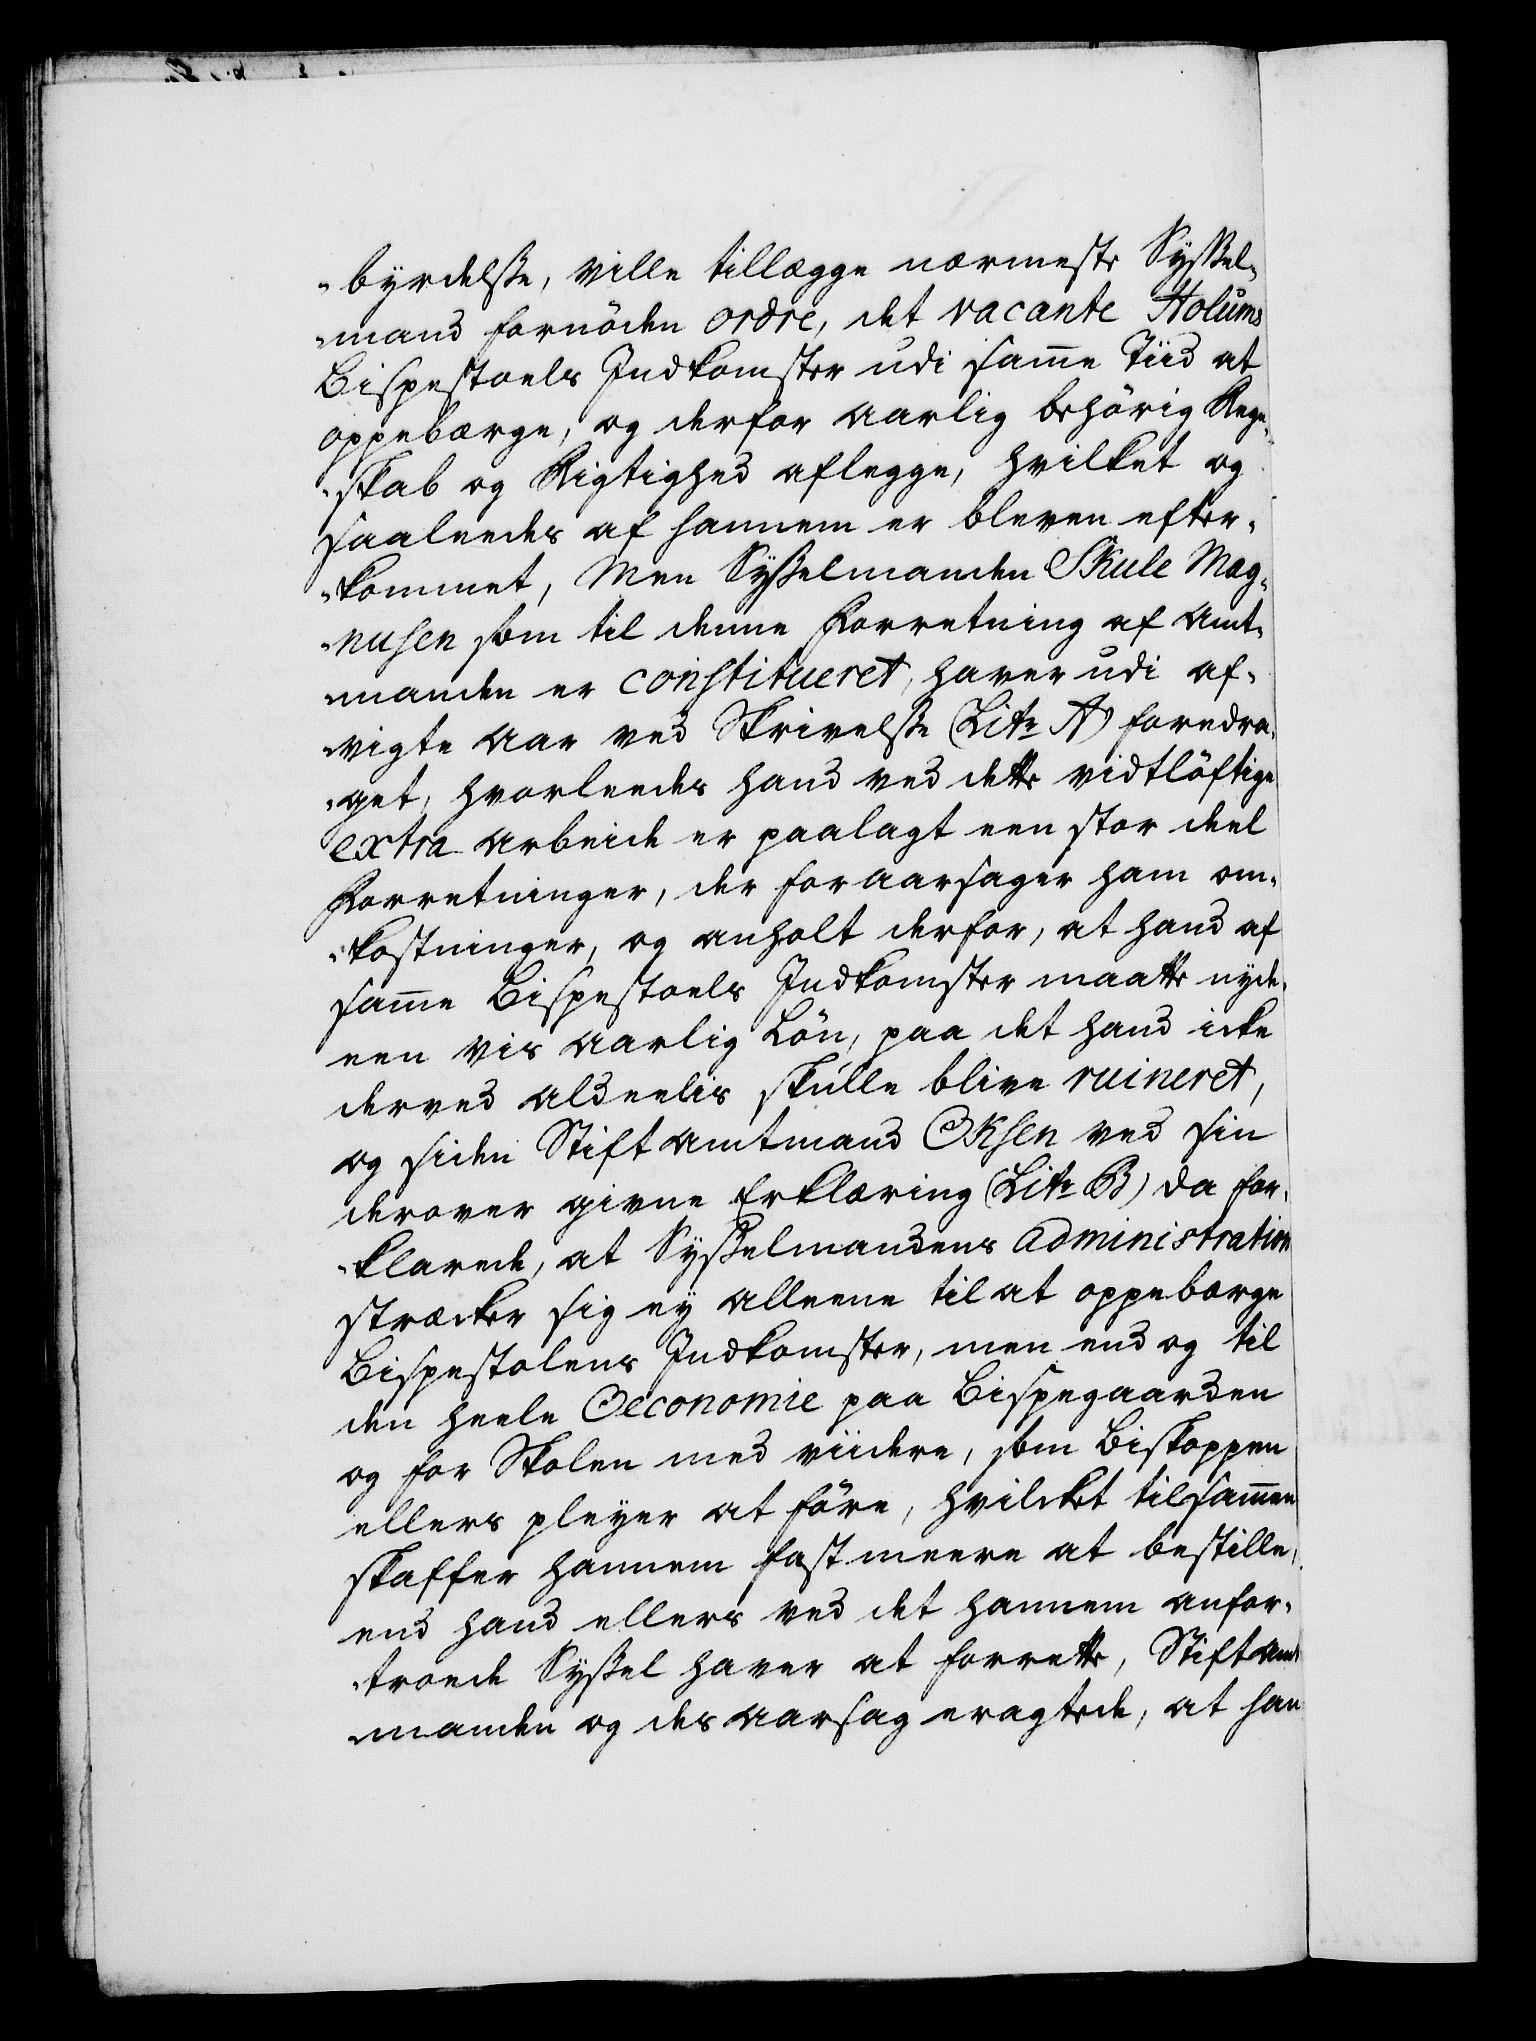 -byrdelsse, ville tillægge nærmeste Syssel-
-mand fornöden ordre, det vacante Holums
Bispestoels Indkomster udi samme Tiid at
oppebærge, og derfor aarlig behörig Reg-
-skab og Rigtighed aflegge, hvilket og
saaleedes af hannem er bleven efter-
-kommet, Men Sysselmanden Skule Mag-
-nusen som til denne Forretning af Amt-
-manden er constitueret, haver udi af-
-vigte Aar ved Skrivelsse (Litr A) foredra-
-get, hvorleedes hand ved dette vidtlöftige
extra Arbeide er paalagt een stor deel
Forretninger, der foraarsager ham om-
-kostninger, og anholt derfor, at hand af
samme Bispestoels Indkomster maatte nyde
een vis aarlig Lön, paa det hand icke
derved aldeelis skulle blive ruineret,
og siden Stiftamtmand Oksen ved sin
derover givne Erklæring (Litr B) da for-
-klarede, at Sysselmandens Administration
strecker sig ey alleene til at oppebærge
Bispestolens Indkomster, men end og til
den heele Oeconomie paa Bispegaarden
og for Skolen med viidere, som Biskoppen
ellers pleyer at före, hvilcket tilsammen
skaffer hannem fast meere at bestille,
end hand ellers ved det hannem anfor-
-troede Syssel haver at forrette, Stiftamt
-manden og des aarsag eragtede, at han